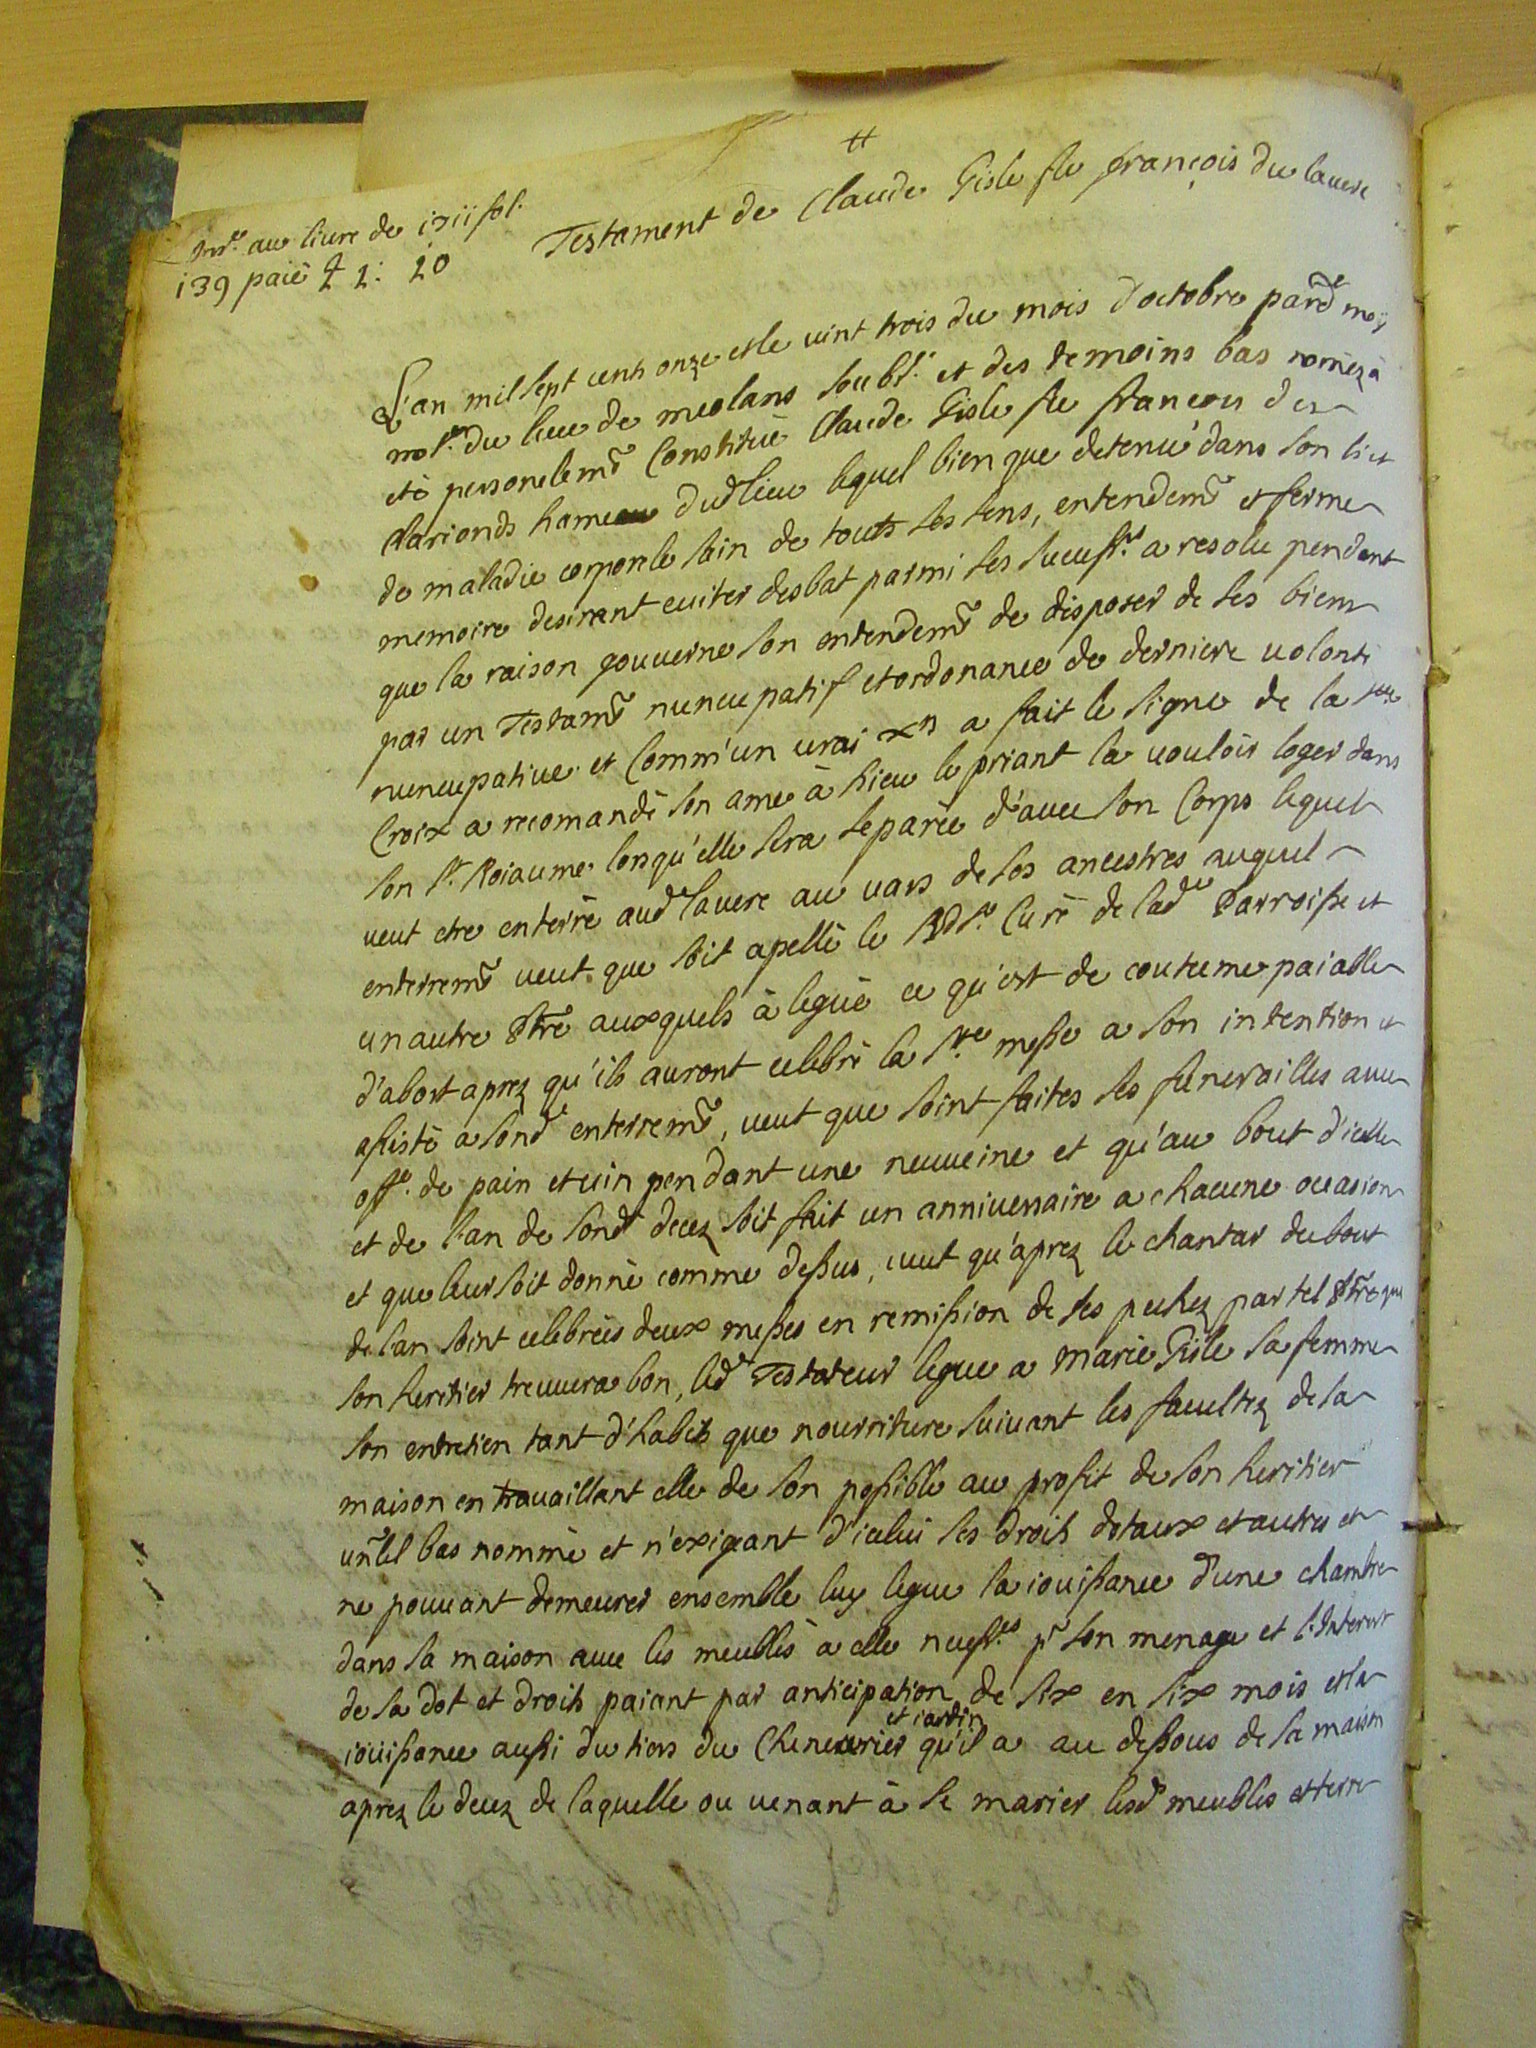 Insé. au livre de 1711 fol.
139 paié 2 1: 10
Testament de Claude Gisle feu françois du lavere
L'an mil sept cents onze et le vint trois du mois d'octobre pardt moy
not.re du lieu de meolans soubs.é et des temoins bas nommez a
eté personelemt Constitué Claude Gisle feu françois des
Clarionds hameau dud lieu lequel bien que detenu dans son lict
de maladie corporele sain de touts ses sens, entendemt et ferme
memoire desirant eviter desbat parmi ses success.rs a resolu pendant
que la raison gouverne son entendemt de disposer de ses biens
par un Testamt nuncupatif et ordonance de derniere volonté
nuncupative et Comm'un vrai xn a fait le signe de la ste
Croix a recomandé son ame à Dieu le priant la vouloir loger dans
son st. Roiaume lorsqu'elle sera separée d'avec son Corps lequel
veut etre enterré aud lavere au vars de ses ancestres auquel
enterremt veut que soit apellé le Rd sr. Curé de lade Parroisse et
un autre Ptre auxquels à legué ce qu'est de coutume paiable
d'abort aprez qu'ils auront celebré la ste messe a son intention et
assisté a sond enterremt, veut que soint faites ses funerailles avec
offe. de pain et vin pendant une neuveine et qu'au bout d'icelle
et de l'an de sondt decez soit fait un anniversaire a chacune ocasion
et que leur soit donné comme dessus, veut qu'aprez le chantar du bout
de l'an soint celebrées deux messes en remission de ses pechez par tel Ptre que
son heritier treuvera bon, led Testateur legue a marie Gisle sa femme
son entretien tant d'habits que nourriture suivant les facultez de sa
maison en travaillant elle de son possible au profit de son heritier
unl bas nommé et n'exigeant d'icelui ses droits dotaux et autres et
ne pouvant demeurer ensemble luy legue la jouissance d'une chambre
dans sa maison avec les meubles à elle necess.es pr son menage et l'Interest
de sa dot et droits paiant par anticipation de six en six mois et la
et jardin
jouissance aussi du tiers du Chenevrier qu'il a au dessous de sa maison
aprez le decez de laquelle ou venant à se marier lesd meubles et terre